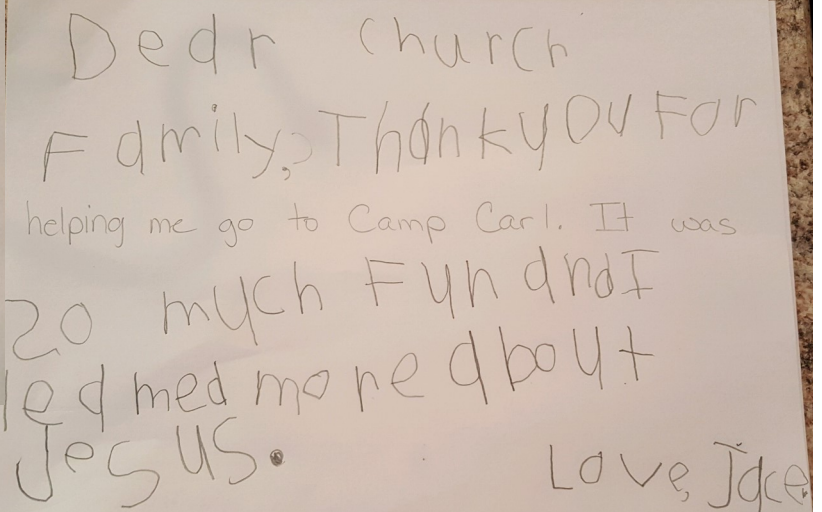 Dear Church
Family, Thank you For
helping me go to Camp Carl. It was
so much Fun and I
learned more about
Jesus.
Love, Jace